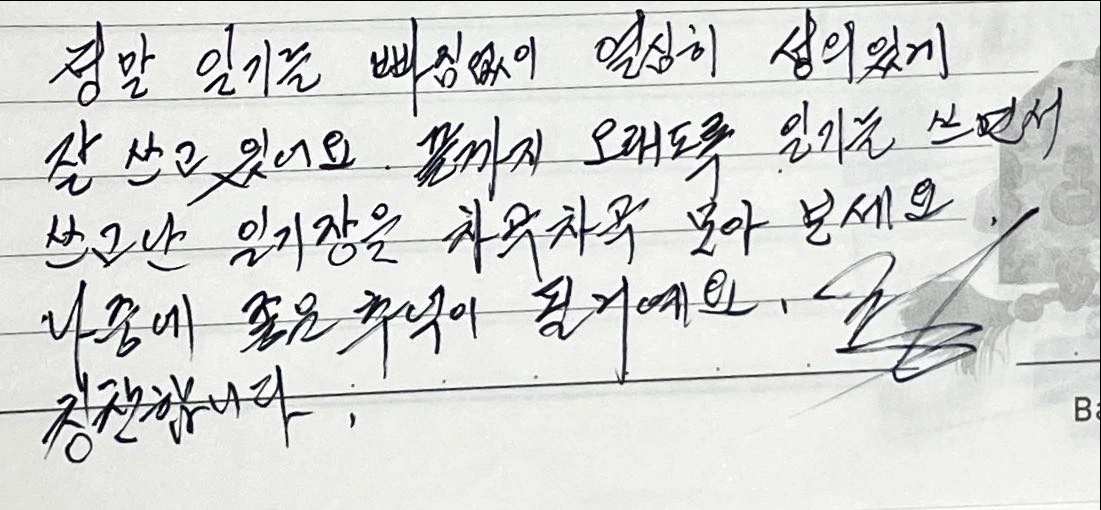 정말 일기를 빠짐없이 열심히 성의있게
잘 쓰고 있어요. 끝까지 오래도록 일기를 쓰면서
쓰고난 일기장을 차곡차곡 모아 보세요.
나중에 좋은 추억이 될거예요.
칭찬합니다.
Ba